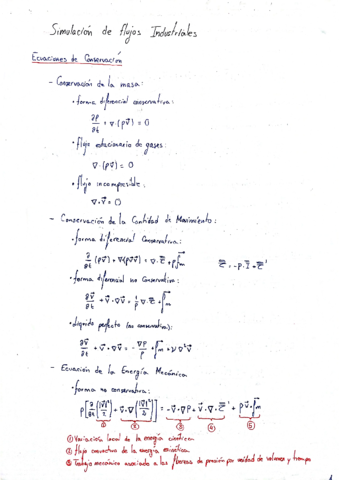 Simulación de flujos Industriales
Ecuaciones de Conservación
- Conservación de la masa:
• forma diferencial conservativa:
∂ρ/∂t + ∇·(ρv⃗) = 0
• flujo estacionario de gases:
∇·(ρv⃗) = 0
• flujo incompresible:
∇·v⃗ = 0
- Conservación de la Cantidad de Movimiento:
• forma diferencial Conservativa:
∂/∂t (ρv⃗) + ∇(ρv⃗v⃗) = ∇·τ̿ + ρf⃗m    τ̿ = -p·I̿ + τ̿'
• forma diferencial no Conservativa:
∂v⃗/∂t + v⃗·∇v⃗ = 1/ρ ∇·τ̿ + f⃗m
• Líquido perfecto (no conservativa):
∂v⃗/∂t + v⃗·∇v⃗ = -∇p/ρ + f⃗m + ν∇²v⃗
- Ecuación de la Energía Mecánica
• forma no conservativa:
ρ[∂/∂t(|v⃗|²/2) + v⃗·∇(|v⃗|²/2)] = -v⃗·∇p + v⃗·∇·τ̿' + ρv⃗·f⃗m
① ② ③ ④ ⑤
① Variación local de la energía cinética
② flujo convectivo de la energía cinética
③ Trabajo mecánico asociado a las fuerzas de presión por unidad de volumen y tiempo